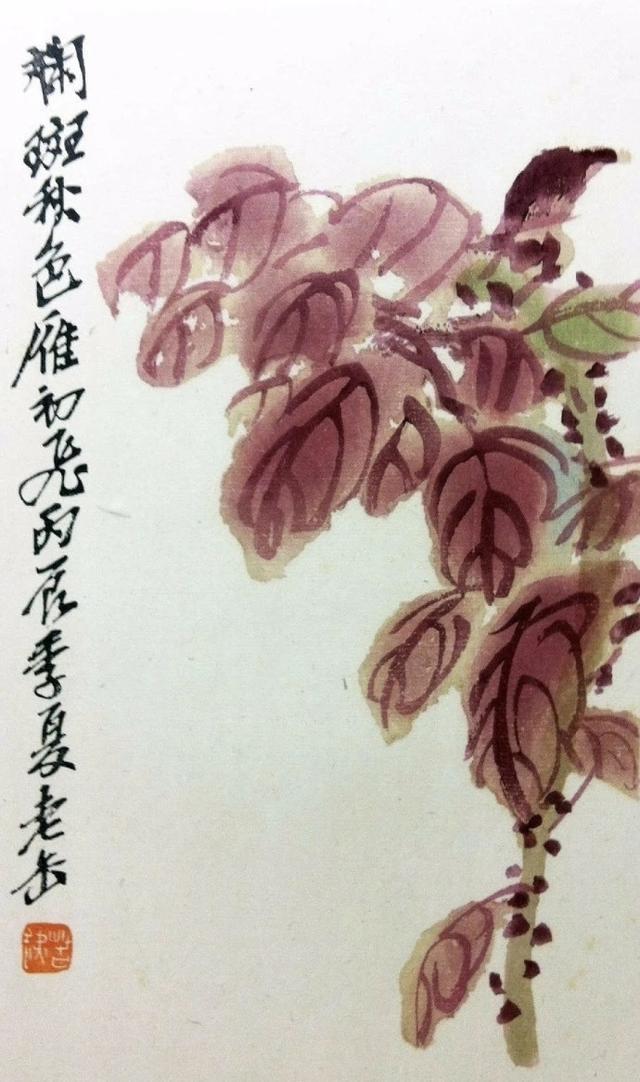 斕斑秋色雁初飛丙辰季夏老缶